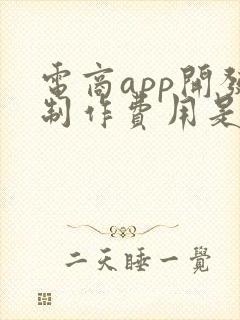 電商app開發
制作費用是
二天睡一覺